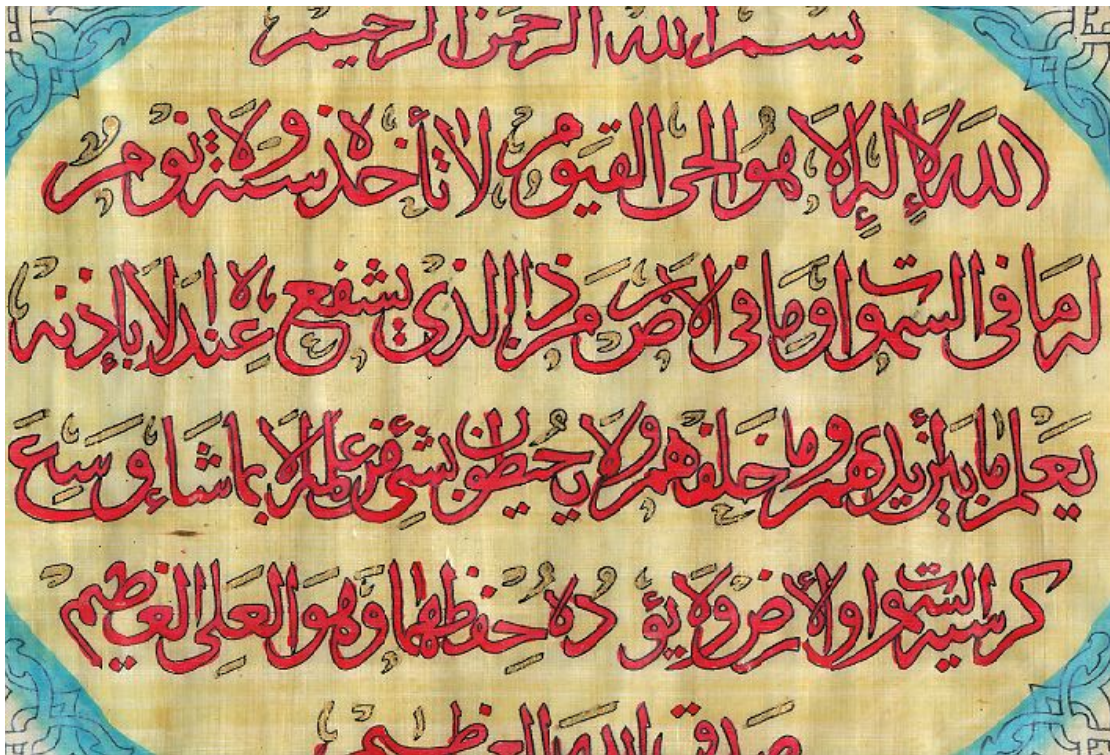 بسم الله الرحمن الرحيم
الله لا إله إلا هو الحي القيوم لا تأخذه سنة ولا نوم
له ما في السموات وما في الأرض من ذا الذي يشفع عنده إلا بإذنه
يعلم ما بين أيديهم وما خلفهم ولا يحيطون بشيء من علمه إلا بما شاء وسع
كرسيه السموات والأرض ولا يؤده حفظهما وهو العلي العظيم
صدق الله العظيم